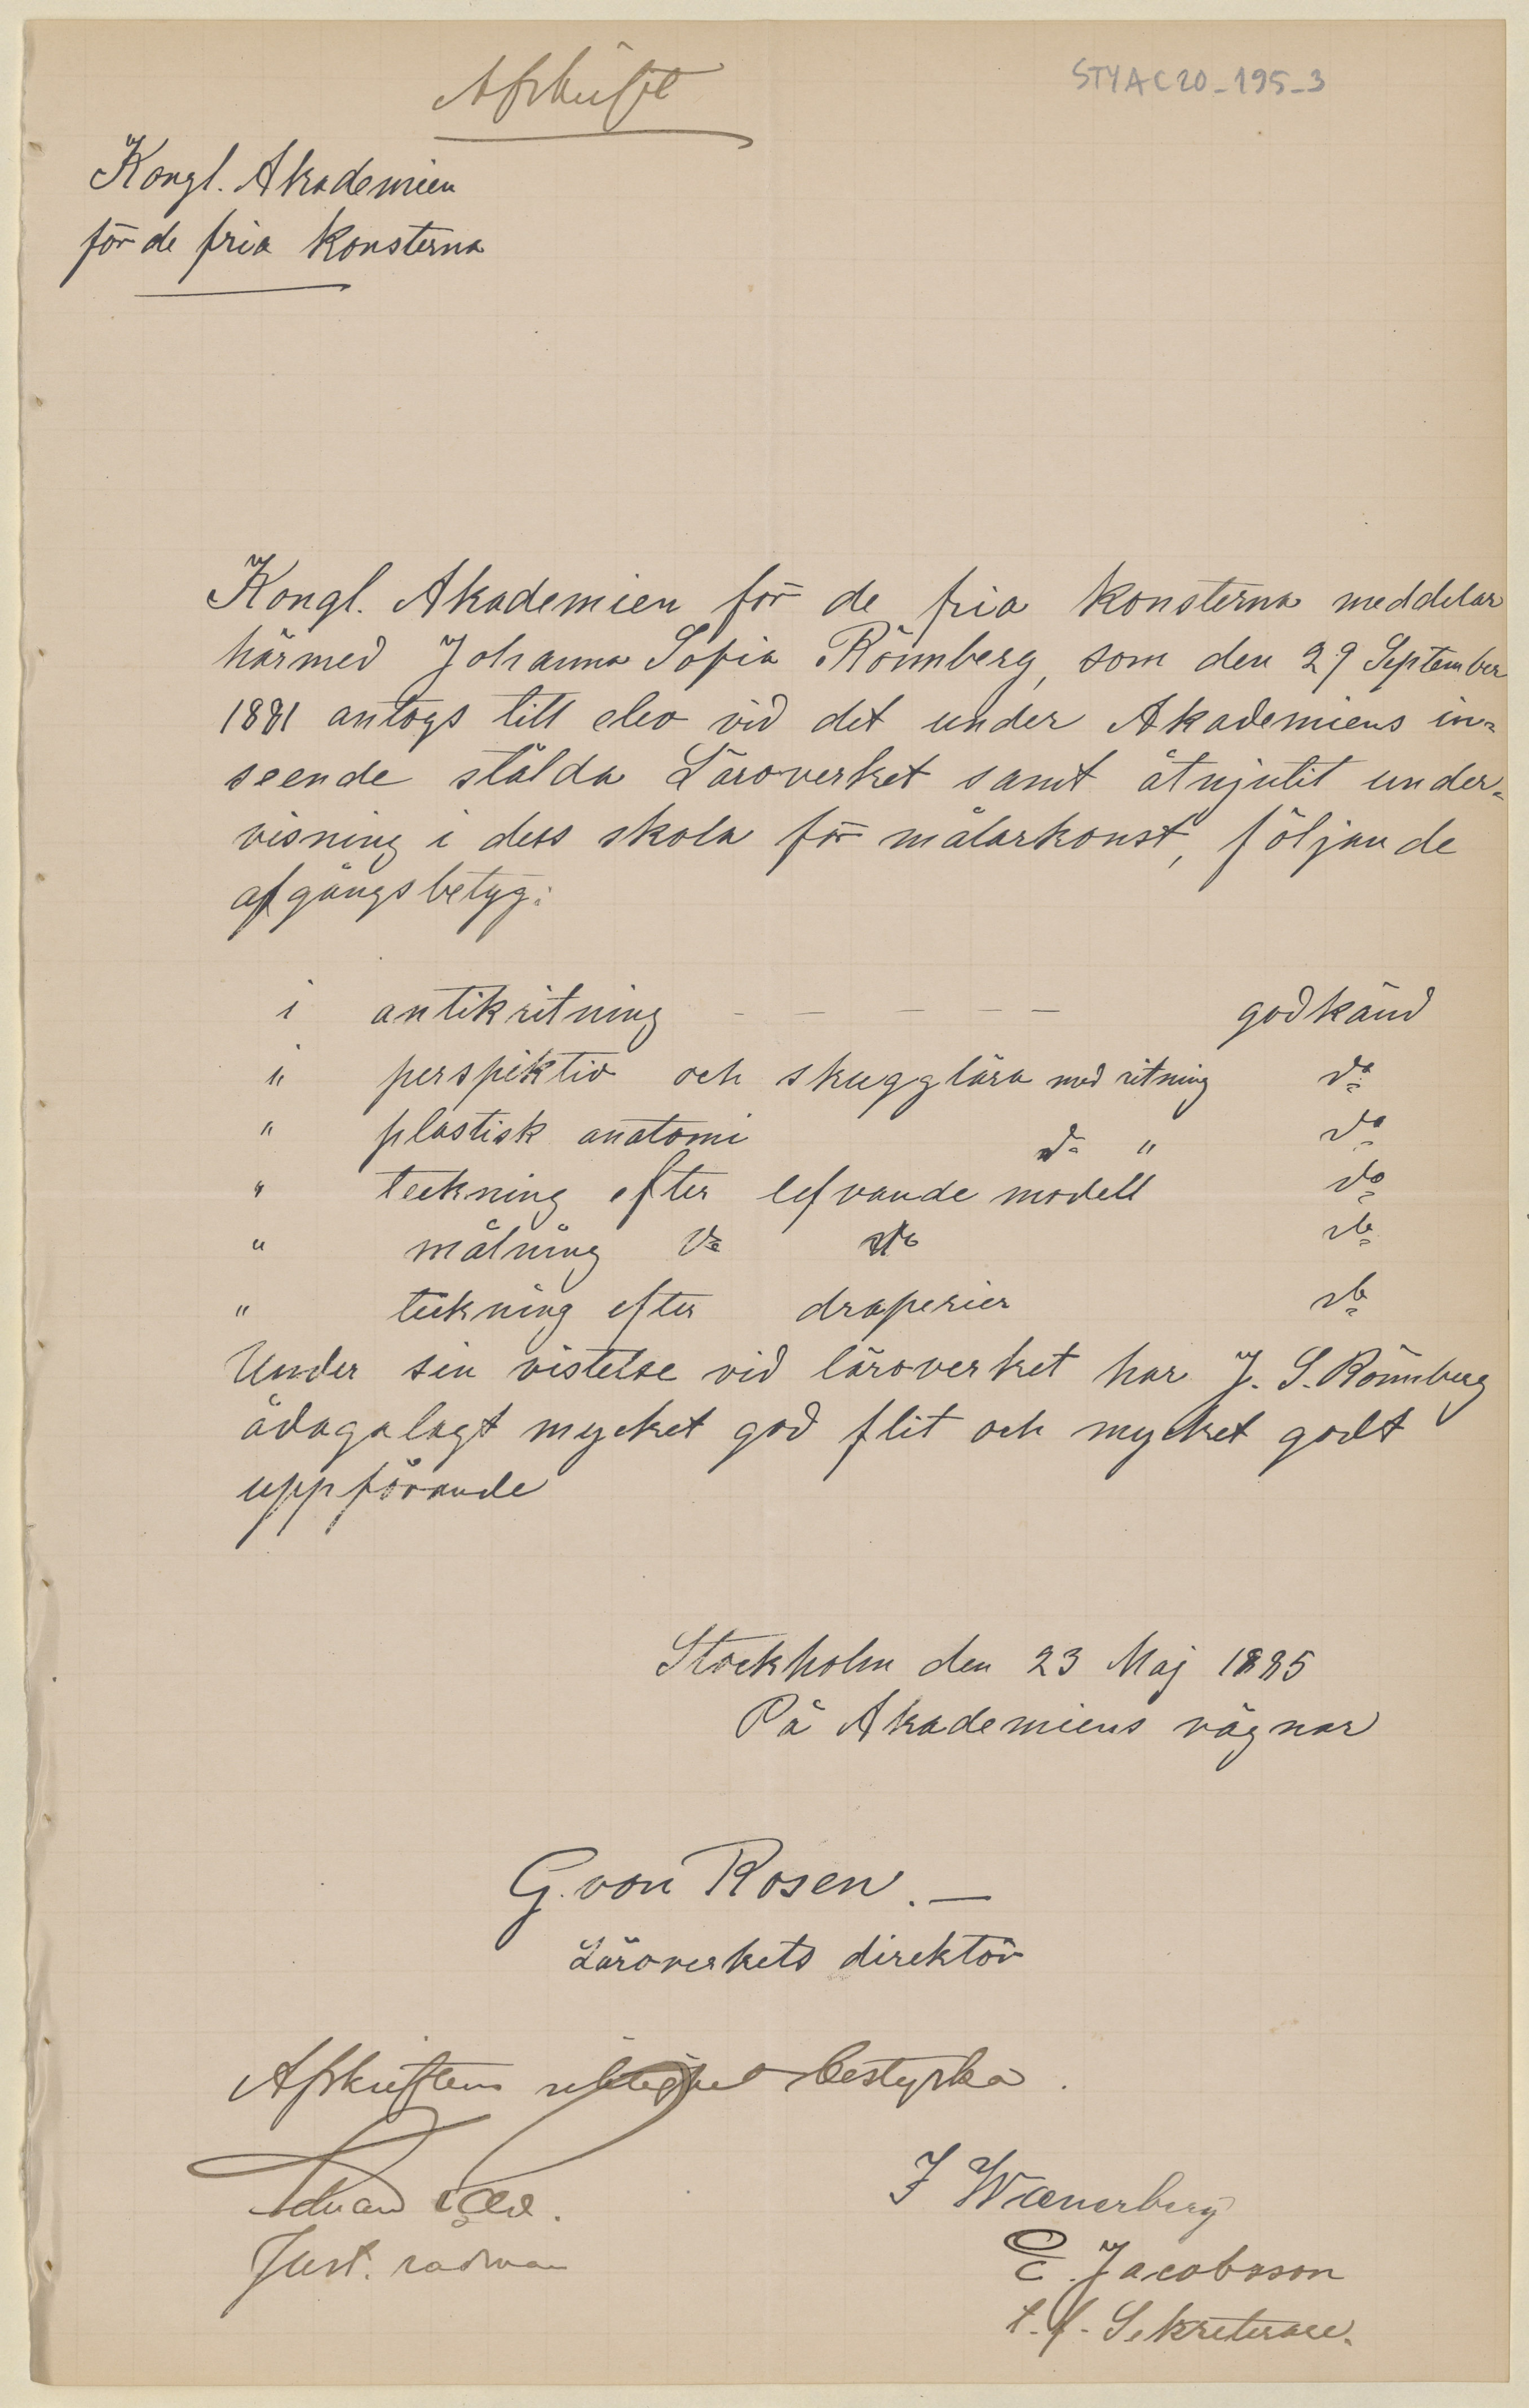 Afskrift
STYAC20_195_3
Kongl. Akademien
för de fria konsterna
Kongl. Akademien för de fria konsterna meddelar
härmed Johanna Sofia Rönnberg, som den 29 September
1881 antogs till elev vid det under Akademiens in=
seende stälda Läroverket samt åtnjutit under=
visning i dess skola för målarkonst, följande
afgångsbetyg:
i antikritning - - - - - - godkänd
" perspektiv och skugglära med ritning do
" plastisk anatomi do " do
" teckning efter lefvande modell do
" målning do do do
" teckning efter draperier do
Under sin vistelse vid läroverket har J. S. Rönnberg
ådagalagt mycket god flit och mycket godt
uppförande
Stockholm den 23 Maj 1885
På Akademiens vägnar
G. von Rosen. —
Läroverkets direktör
Afskriftens riktighet bestyrka.
Just. rådman
J Wænerberg
E. Jacobsson
t. f. Sekreterare.